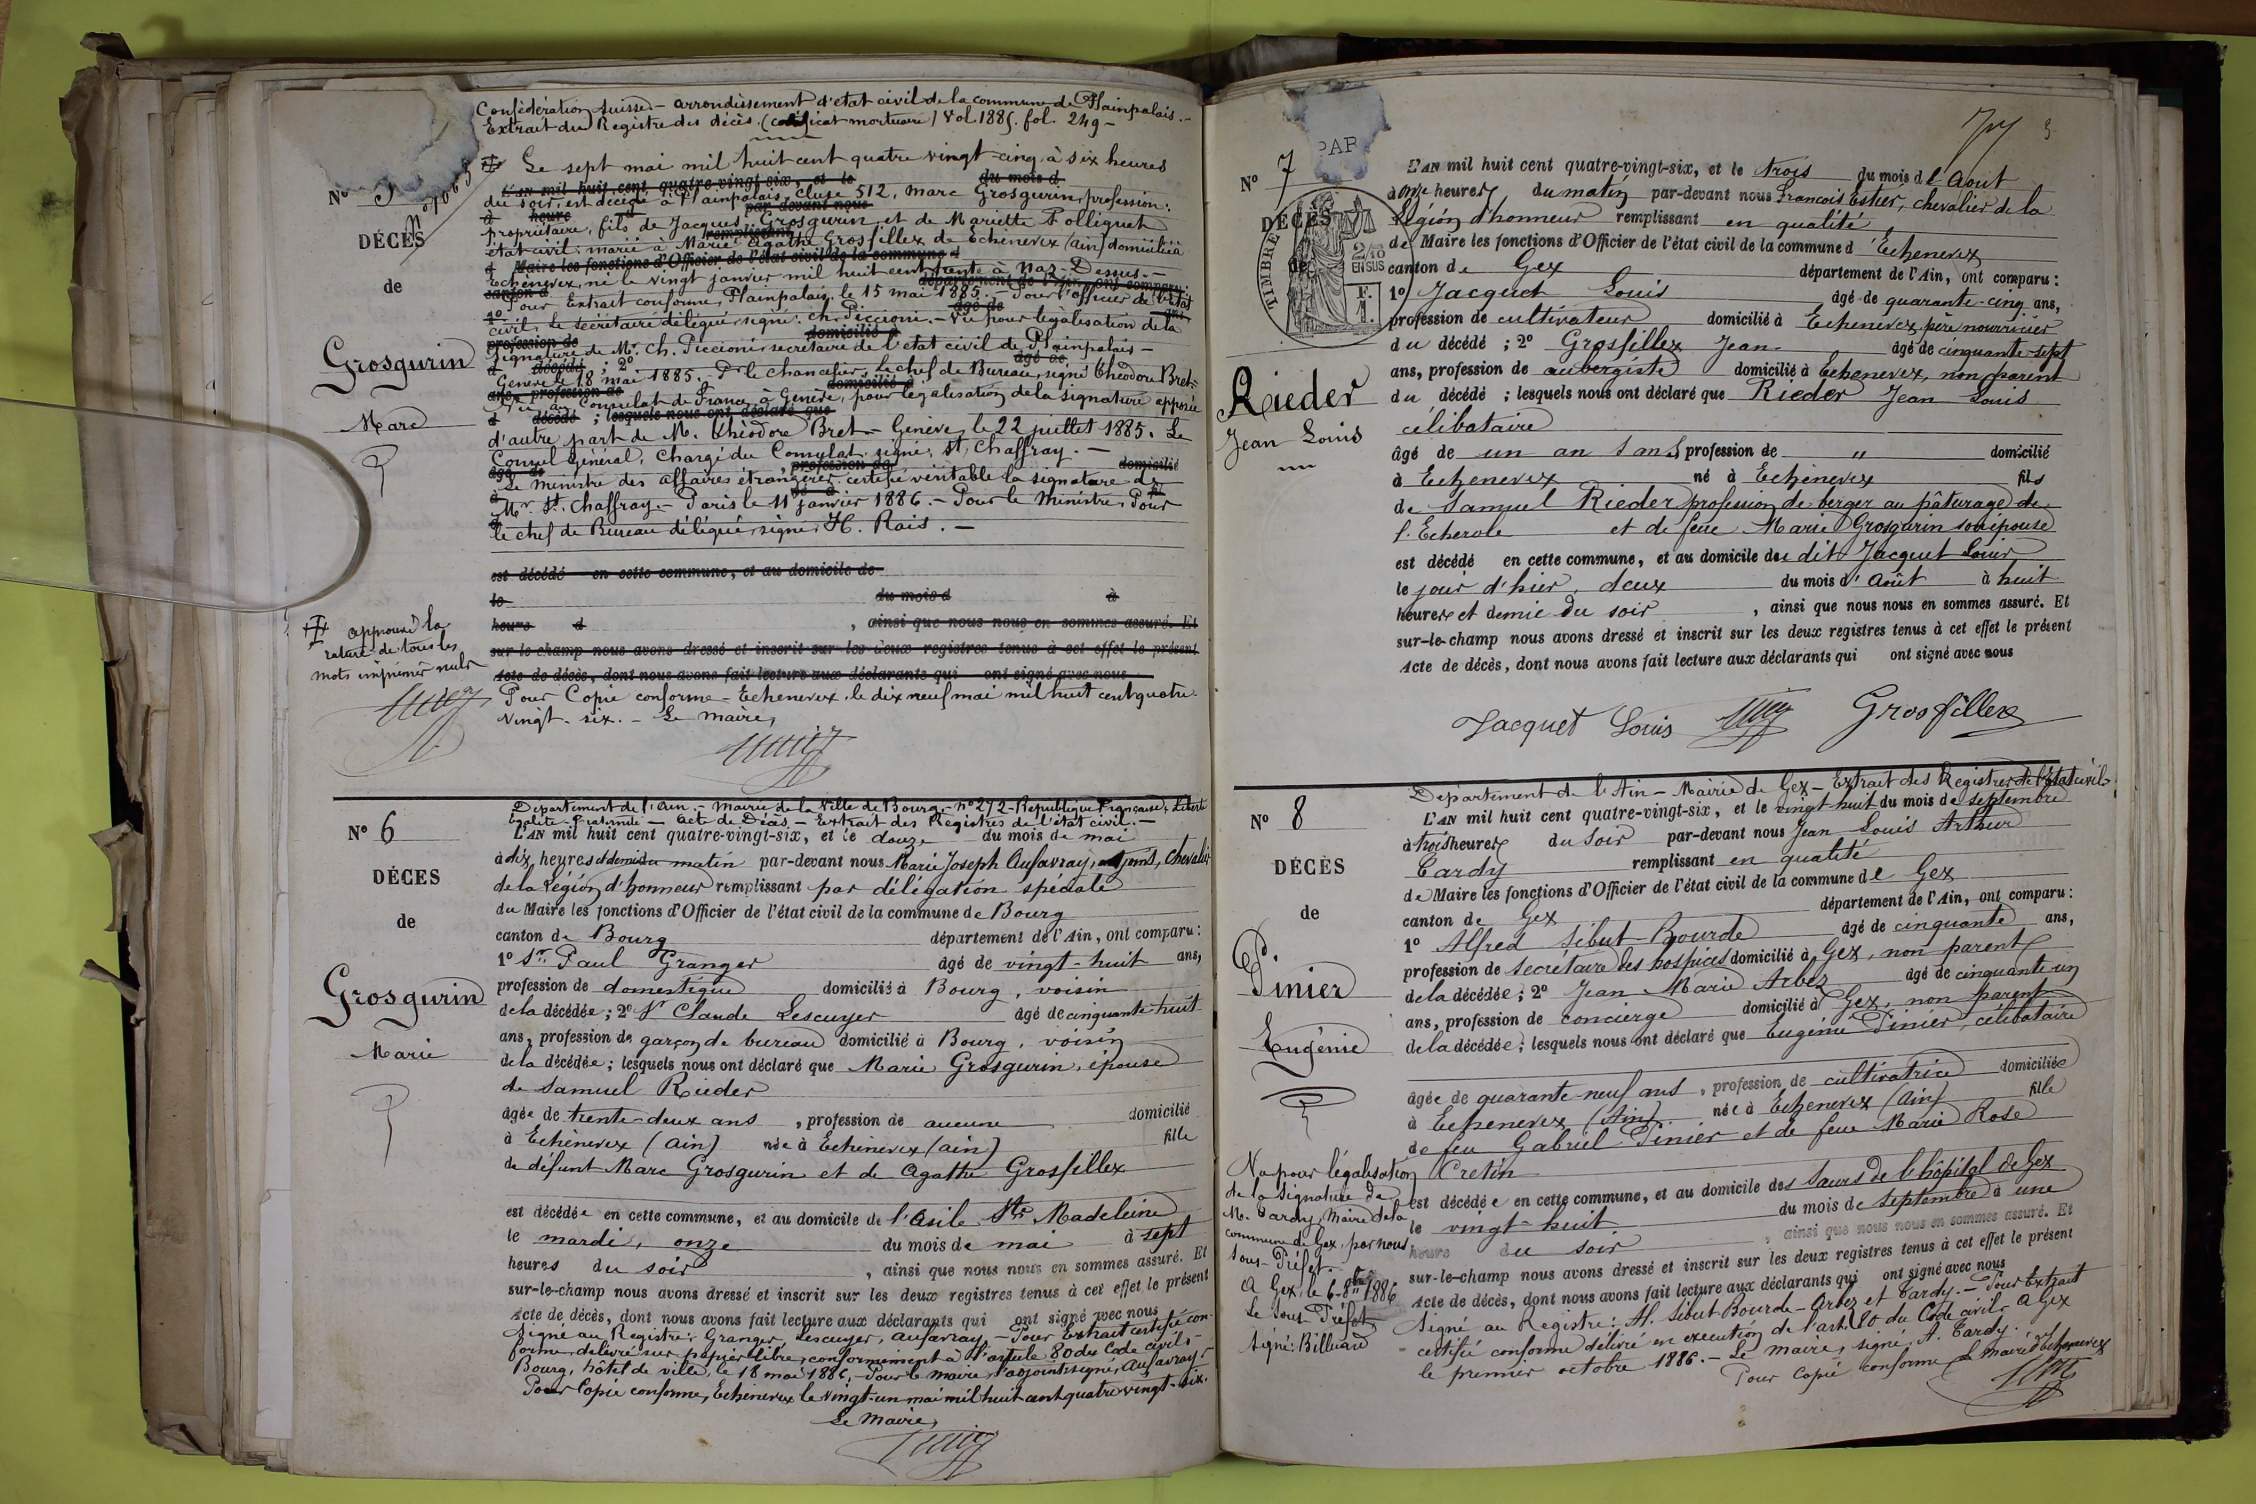 Confédération Suisse - arrondissement d'état civil de la commune de Plainpalais.-
Extrait du Registre des décès. (certificat mortuaire) Vol. 1885. fol. 249 -
Nº 5
DÉCÈS
de
Grosgurin
Marc
Le sept mai mil huit cent quatre vingt-cinq à six heures
L'AN mil huit cent quatre-vingt-six, et le du mois d
du soir, est décédé à Plainpalais, Cluse 512, Marc Grosgurin, profession:
à heure d par-devant nous
propriétaire, fils de Jacques Grosgurin et de Mariette Folliguet
remplissant
état-civil: marié à Marie Agathe Grosfillex de Echenevex (ain) domicilié à
d Maire les fonctions d'Officier de l'état civil de la commune d
Echenevex, né le vingt janvier mil huit cent trente à Naz-Dessus.-
canton d département de l'Ain, ont comparu:
Pour Extrait conforme, Plainpalais, le 15 mai 1885.- Pour l'officier de l'état
1º âgé de ans,
civil, le secrétaire délégué, signé: Ch. Piccioni.- Vu pour légalisation de la
profession de domicilié à
signature de Mr. Ch. Piccioni, secrétaire de l'état civil de Plainpalais -
d décédé ; 2º âgé de
Genève le 18 mai 1885. Pr. le chancelier, Le chef de Bureau, signé Théodore Bret=
ans, profession de domicilié à
Vu au Consulat de France, à Genève, pour légalisation de la signature apposée
d décédé ; lesquels nous ont déclaré que
d'autre part de M. Théodore Bret - Genève, le 22 juillet 1885. Le
Consul Général, Chargé du Consulat, signé: St. Chaffray. -
âgé de profession de domicilié
Le Ministre des affaires étrangères certifie véritable la signature de
à né à fil
Mr. St. Chaffray.- Paris le 11 janvier 1886.- Pour le Ministre, Pour
d
le chef de Bureau délégué, signé, H. Rais. -
est décédé en cette commune, et au domicile de
le du mois d à
heure d , ainsi que nous nous en sommes assuré. Et
sur-le-champ nous avons dressé et inscrit sur les deux registres tenus à cet effet le présent
Acte de décès, dont nous avons fait lecture aux déclarants qui ont signé avec nous
Pour Copie conforme - Echenevex, le dix neuf mai mil huit cent quatre
vingt-six.- Le maire,
approuvé la
rature de tous les
mots imprimés nuls
Nº 6
DÉCÈS
de
Grosgurin
Marie
Département de l'Ain.- Mairie de la Ville de Bourg.- nº 272 - République Française, Liberté
Egalité-Fraternité - Acte de Décès - Extrait des Registres de l'état civil.-
L'AN mil huit cent quatre-vingt-six, et le douze du mois de mai
à dix heures et demie du matin par-devant nous Marie Joseph Aufavray, adjoint, chevalier
de la Légion d'honneur remplissant par délégation spéciale
du Maire les fonctions d'Officier de l'état civil de la commune de Bourg
canton de Bourg département de l'Ain, ont comparu:
1º Sr. Paul Granger âgé de vingt-huit ans,
profession de domestique domicilié à Bourg, voisin
de la décédée; 2º Sr Claude Lescuyer âgé de cinquante huit
ans, profession de garçon de bureau domicilié à Bourg, voisin
de la décédée; lesquels nous ont déclaré que Marie Grosgurin, épouse
de Samuel Rieder
âgée de trente-deux ans , profession de aucune domicilié
à Echenevex (ain) née à Echenevex (ain) fille
de défunt Marc Grosgurin et de Agathe Grosfillex
est décédée en cette commune, et au domicile de l'Asile Ste Madeleine
le mardi, onze du mois de mai à sept
heures du soir , ainsi que nous nous en sommes assuré. Et
sur-le-champ nous avons dressé et inscrit sur les deux registres tenus à cet effet le présent
Acte de décès, dont nous avons fait lecture aux déclarants qui ont signé avec nous
signé au Registre: Granger, Lescuyer, Aufavray.- Pour Extrait certifié con-
forme, délivré sur papier libre, conformément à l'article 80 du Code civil -
Bourg, hôtel de ville, le 18 mai 1886, Pour le maire, l'adjoint signé, Aufavray
Pour Copie conforme, Echenevex le vingt-un mai mil huit cent quatre vingt-six.
Le Maire,
Nº 7
DÉCÈS
de
Rieder
Jean Louis
PAP
TIMBRE
2/10
EN SUS
F.
1.
L'AN mil huit cent quatre-vingt-six, et le trois du mois d'Aout
à onze heures du matin par-devant nous François Estier, chevalier de la
Légion d'honneur remplissant en qualité
de Maire les fonctions d'Officier de l'état civil de la commune d'Echenevex
canton de Gex département de l'Ain, ont comparu:
1º Jacquet Louis âgé de quarante-cinq ans,
profession de cultivateur domicilié à Echenevex, père nourricier
du décédé ; 2º Grosfillex Jean âgé de cinquante-sept
ans, profession de aubergiste domicilié à Echenevex, non parent
du décédé ; lesquels nous ont déclaré que Rieder Jean Louis
célibataire
âgé de un an profession de " domicilié
à Echenevex né à Echenevex fils
de Samuel Rieder profession de berger au pâturage de
l'Echerole et de feue Marie Grosgurin son épouse
est décédé en cette commune, et au domicile du dit Jacquet Louis
le jour d'hier, deux du mois d'Août à huit
heures et demie du soir , ainsi que nous nous en sommes assuré. Et
sur-le-champ nous avons dressé et inscrit sur les deux registres tenus à cet effet le présent
Acte de décès, dont nous avons fait lecture aux déclarants qui ont signé avec nous
Jacquet Louis Grosfillex
Nº 8
DÉCÈS
de
Pinier
Eugénie
Département de l'Ain - Mairie de Gex - Extrait des Registres de l'état civil-
L'AN mil huit cent quatre-vingt-six, et le vingt huit du mois de septembre
à trois heures du soir par-devant nous Jean Louis Arthur
Tardy remplissant en qualité
de Maire les fonctions d'Officier de l'état civil de la commune de Gex
canton de Gex département de l'Ain, ont comparu:
1º Alfred Sibut-Bourde âgé de cinquante ans,
profession de secrétaire des hospices domicilié à Gex, non parent
de la décédée; 2º Jean Marie Arbez âgé de cinquante un
ans, profession de concierge domicilié à Gex, non parent
de la décédée; lesquels nous ont déclaré que Eugénie Pinier, célibataire
âgée de quarante-neuf ans , profession de cultivatrice domiciliée
à Echenevex (Ain) née à Echenevex (ain) fille
de feu Gabriel Pinier et de feue Marie Rose
Cretin
est décédée en cette commune, et au domicile des Sœurs de l'hôpital de Gex
le vingt-huit du mois de septembre à une
heure du soir , ainsi que nous nous en sommes assuré. Et
sur-le-champ nous avons dressé et inscrit sur les deux registres tenus à cet effet le présent
Acte de décès, dont nous avons fait lecture aux déclarants qui ont signé avec nous
Signé au Registre: A. Sibut-Bourde - Arbez et Tardy.- Pour Extrait
certifié conforme délivré en exécution de l'art. 80 du Code civil. A Gex
le premier octobre 1886.- Le maire, signé, A. Tardy.
Pour copie conforme, Le maire d'Echenevex
Vu pour légalisation
de la signature de
M. Tardy, Maire de la
commune de Gex, par nous
Sous-Préfet.
A Gex, le 6-8bre 1886
Le Sous-Préfet
Signé: Billiard